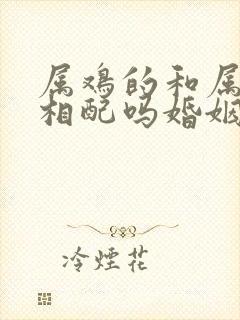 属鸡的和属
相配吗婚姻
冷煙花